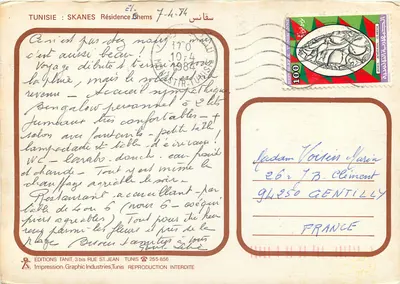 TUNISIE : SKANES Résidence Chems سقانس
7-4-74
Ce n'est pas du natif mais
c'est aussi beau
Voyage débuté à
la pluie, mais le soleil est
revenu - Accueil sympathique
Bungalow personnel à 2 lits
Jumeaux très confortables - +
salon avec fauteuils - petite table
lampadaire et table d'écriture
WC - lavabo. douche. eau froide
et chaude - Tout y est même le
chauffage agréable le soir.
Restaurant accueillant - par
table de 4 ou 6 (nous 6 -
agréables) Tout pour être heu
reux parmi les fleurs et près de la
plage
100
Madame
26, JB. Clément
94250 GENTILLY
FRANCE
EDITIONS TANIT, 3 bis RUE ST. JEAN TUNIS ☎ 255.856
Impression. Graphic Industries, Tunis REPRODUCTION INTERDITE